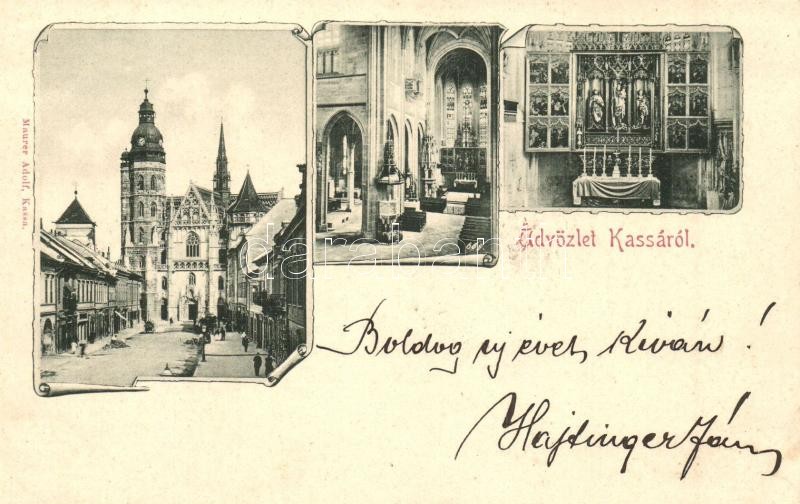 Maurer Adolf, Kassa.
darabanth
Üdvözlet Kassáról.
Boldog uj évet kiván!
Hajtinger Ján